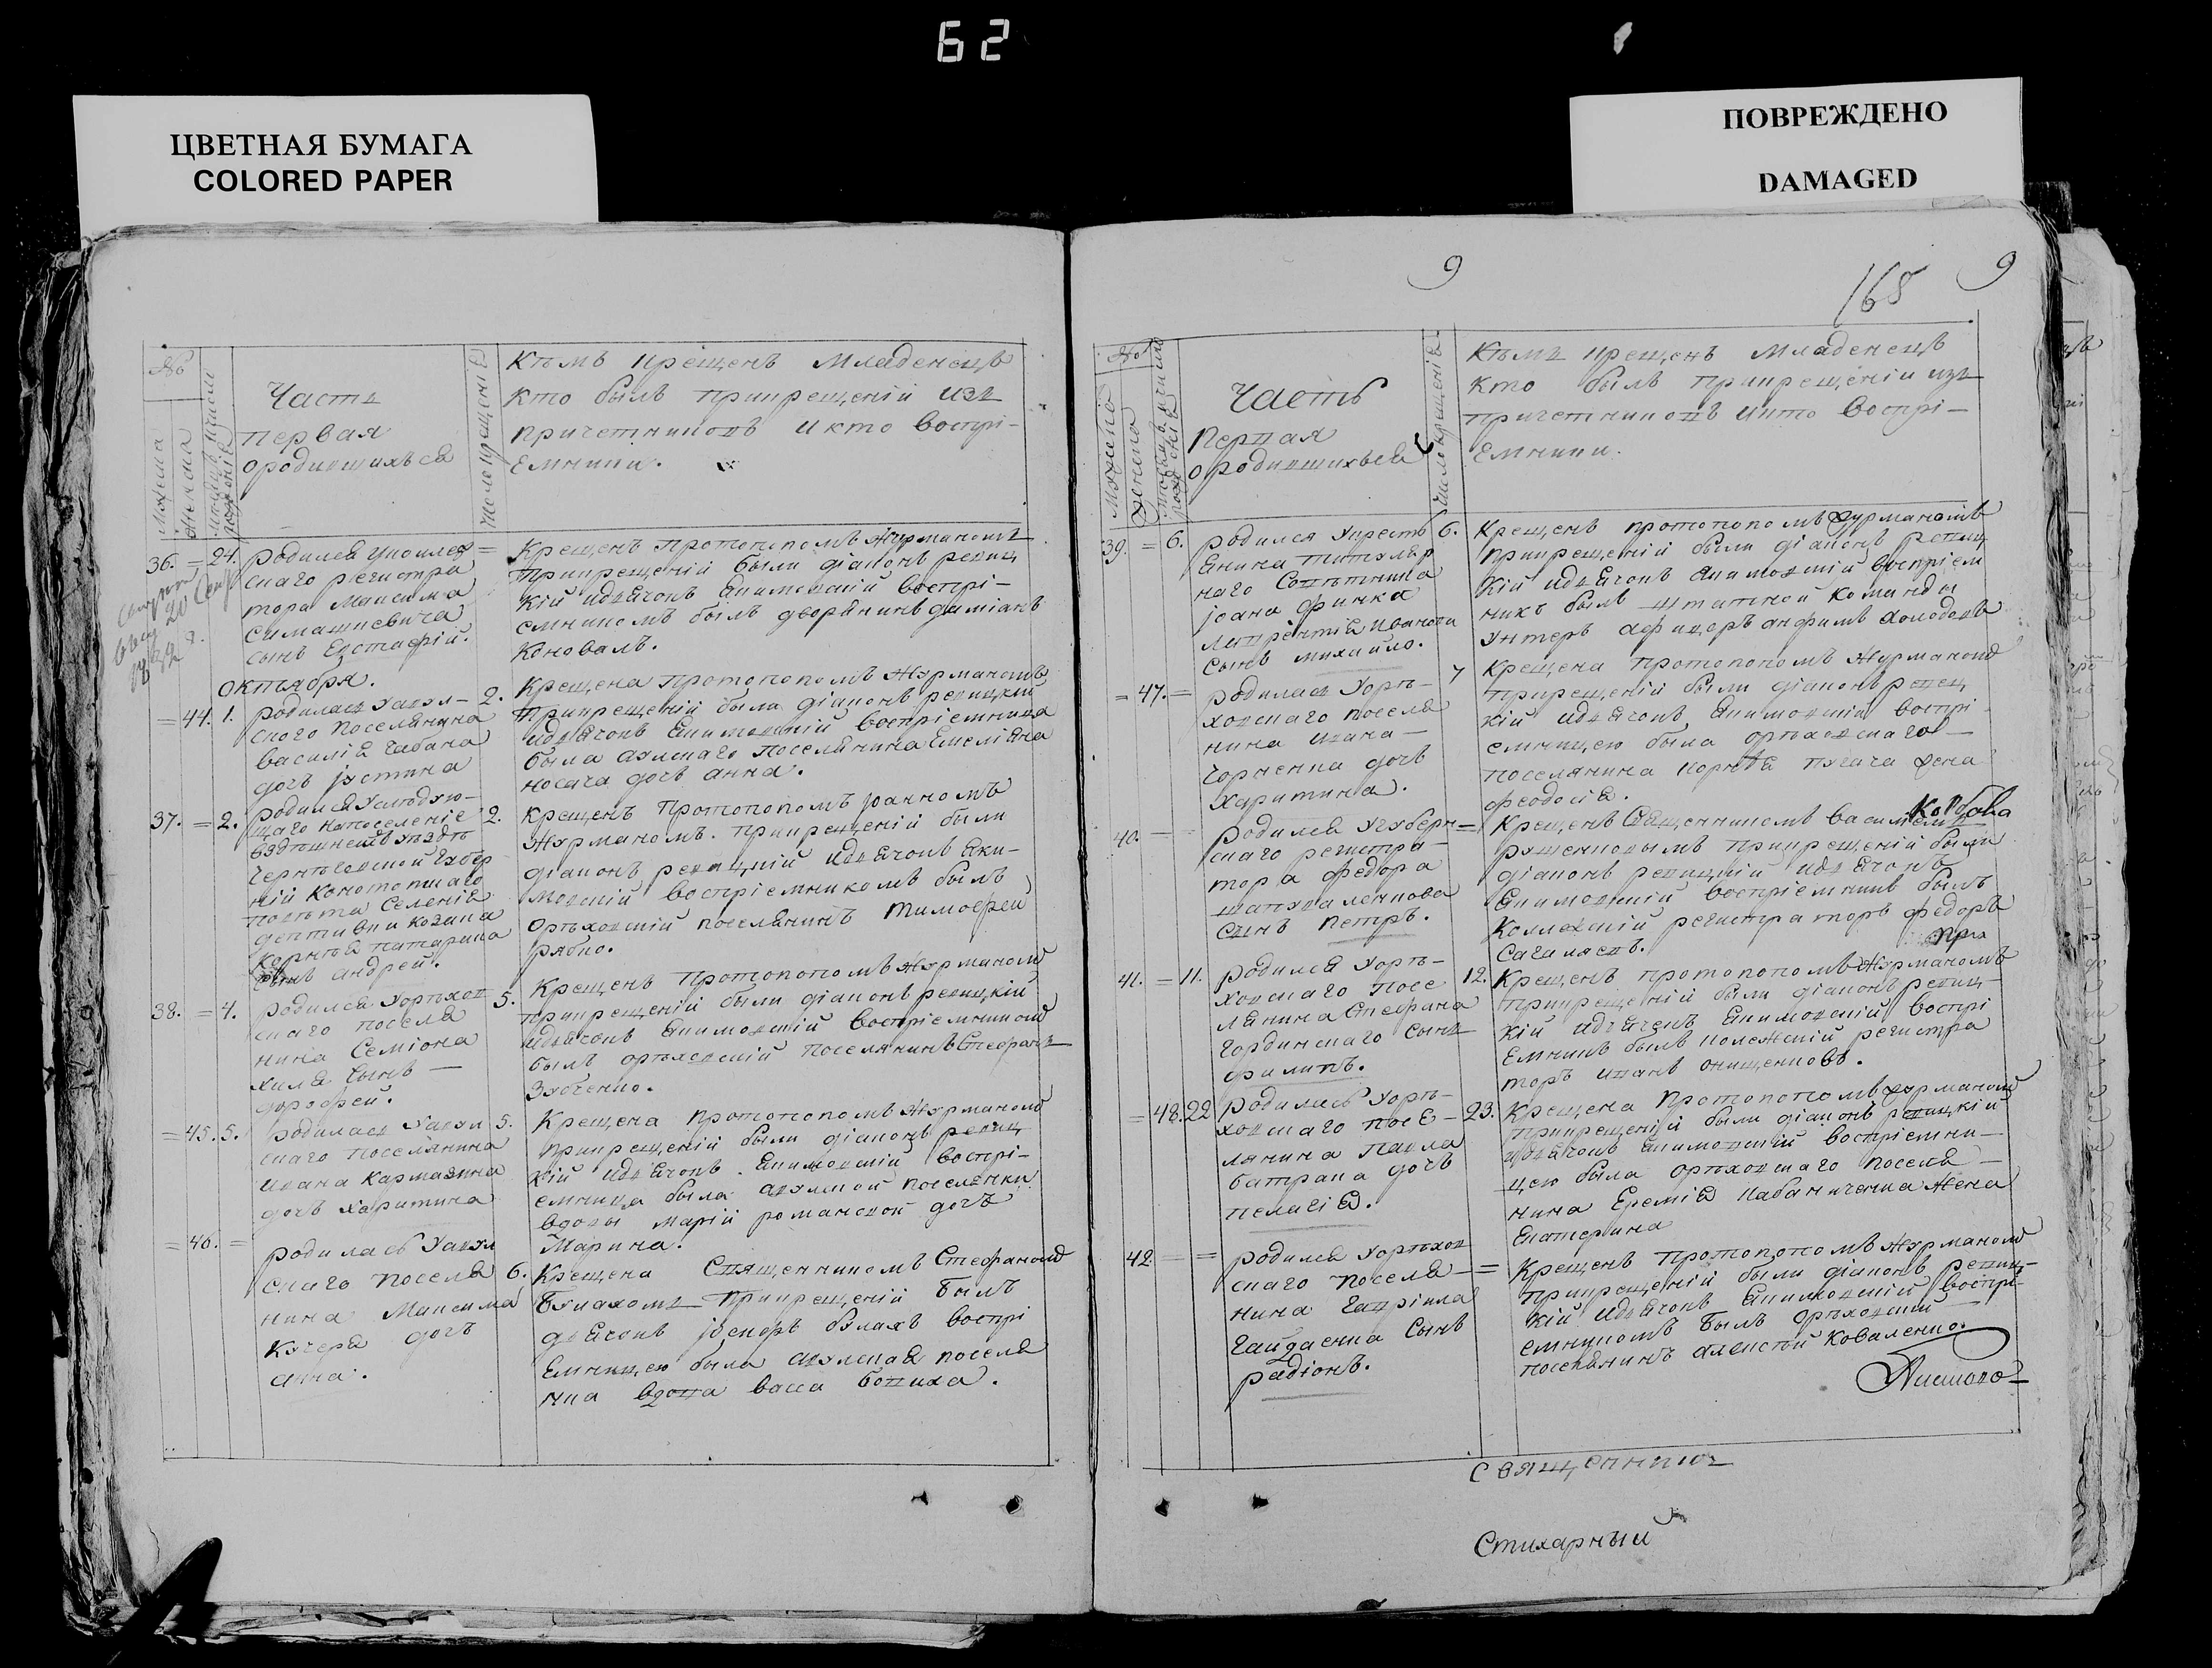 62
ЦВЕТНАЯ БУМАГА
COLORED PAPER
ПОВРЕЖДЕНО
DAMAGED
9
168
9
№
Мужеска
Женска
Число крещенія
Часть
первая
ородившихъся
Къмъ крещенъ Младенецъ
кто былъ прикрещеній изъ
причетниковъ икто воспрі-
емники.
36. = 24.
родился уколеж =
скаго регистра
тора Максима
симашкевича
сынъ Евстафій.
Крещенъ протопопомъ Журманомъ
прикрещеній были діаконъ ревиц
кій идьячокъ Якимовскій воспрі-
емникомъ былъ дворянинъ даміанъ
Коновалъ.
Октября.
= 44. 1.
родилась уакул- 2.
ского поселянина
василія Чабана
дочь јустина
Крещена протопопомъ Журманомъ
Прикрещеній были діаконъ ревицкій
идьячокъ Якимовскій воспріемница
была акулскаго поселянина Емеліяна
носача дочь анна.
37. = 2.
родился услѣдую- 2.
щаго напоселеніе
вздѣшнемъ уездѣ
Черниговской Губер
ній Конотопскаго
повѣта Селенія
козака
Корнѣя
сынъ андрей.
Крещенъ Протопопомъ јоанномъ
Журманомъ. прикрещеній были
діаконъ ревицкій идьячокъ Яки-
мовскій воспріемникомъ былъ
Орѣховскій поселянинъ Тимофей
рябко.
38. = 4.
родился уорѣхов 5.
скаго поселя
нина Семіона
хиля сынъ —
дорофей.
Крещенъ протопопомъ Журманомъ
прикрещеній были діаконъ ревицкій
идьячокъ Якимовскій воспріемникомъ
былъ орѣховскій поселянинъ Стефанъ
Зубченко.
= 45. 5.
родилась уакул 5.
скаго поселянина
ивана Кармазина
дочь харитина
Крещена протопопомъ Журманомъ
прикрещеній были діаконъ ревиц
кій идьячокъ Якимовскій воспрі-
емница была акулской поселянки
вдовы марій романской дочь
Марина.
= 46. =
родилась уакул
скаго поселя 6.
нина Максима
Кучера дочь
анна.
Крещена Священникомъ Стефаномъ
Булахомъ прикрещеній былъ
дьячокъ јосифъ булахъ воспрі
емницею была акулская поселя
нка вдова васса бовиха.
№
Мужеска
Женска
Число крещенія
Часть
Первая
ородившихься
Къмъ крещенъ Младенецъ
кто былъ прикрещеніи изъ
причетниковъ икто воспрі-
емники.
39. = 6.
родился укресть 6.
янина титуляр
наго Совѣтника
јоана финка
лаврентія иванова
сынъ михайло.
Крещенъ протопопомъ Журманомъ
прикрещеній были діаконъ ревиц
кій идьячокъ Якимовскій воспріем
никъ былъ штатной команды
унтеръ афицеръ анфимъ Холодовъ
= 47. =
родилась уорѣ- 7
ховскаго поселя
нина ивана —
Чорненка дочь
харитина.
Крещена Протопопомъ Журманомъ
прикрещеній были діаконъ ревец
кій идьячокъ Якимовскій воспрі-
емницею была орѣховскаго —
поселянина корнѣя пугача жена
феодосія.
40. = =
родился угуберн =
скаго регистра-
тора федора
шаповаленкова
сынъ петръ.
Крещенъ Священникомъ василіемъ
прикрещеній были
діаконъ ревицкій идьячокъ
Якимовскій воспріемникъ былъ
Коллежскій регистраторъ федоръ
41. = 11.
родился уорѣ- 12.
ховскаго посе
лянина Стефана
гординскаго сынъ
филипъ.
Крещенъ протопопомъ Журманомъ
прикрещеній были діаконъ ревиц-
кій идьячокъ Якимовскій воспрі
емникъ былъ колежскій регистра
торъ иванъ онищенковъ.
= 48. 22
родилась уорѣ- 23.
ховскаго посе-
лянина павла
батрака дочь
пелагія.
Крещена протопопомъ Журманомъ
прикрещеній были діаконъ ревицкій
идьячокъ Якимовскій воспріемни-
цею была орѣховскаго поселя —
нина Еремія кабаниченка жена
Екатерина
42. = =
родился уорѣхов
скаго поселя- =
нина гавріила
гайдаенка сынъ
радіонъ.
Крещенъ протопопомъ Журманомъ
прикрещеній были діаконъ ревиц-
кій идьячокъ Якимовскій воспрі-
емникомъ былъ Орѣховскій —
поселянинъ алексѣй Коваленко.
Священнико
Стихарный